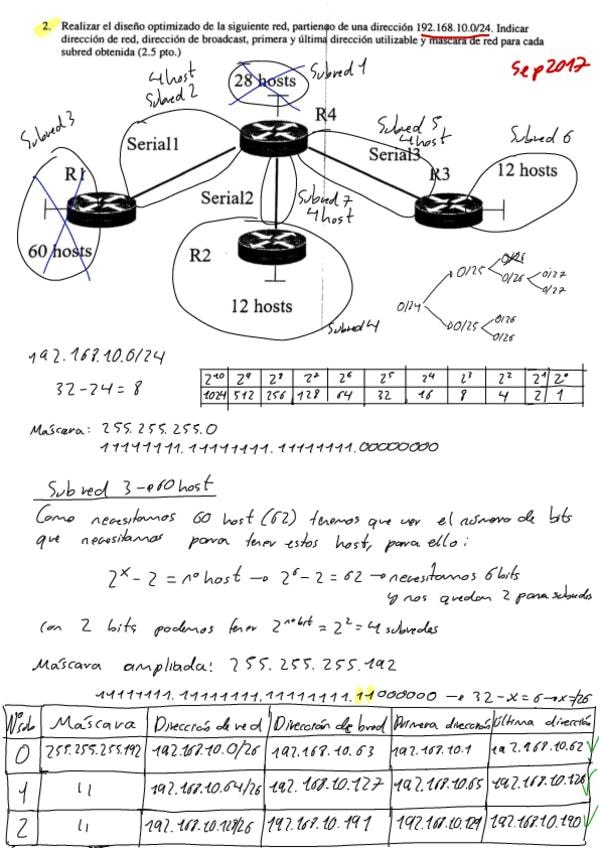 2. Realizar el diseño optimizado de la siguiente red, partiendo de una dirección 192.168.10.0/24. Indicar
dirección de red, dirección de broadcast, primera y última dirección utilizable y máscara de red para cada
subred obtenida (2.5 pto.)
Sep2017
4 host
Subred 2
28 hosts
Subred 1
R4
Subred 3
Serial1
Subred 5
4 host
Serial3
Subred 6
R1
R3
12 hosts
Serial2
Subred 7
4 host
60 hosts
R2
12 hosts
Subred 4
0/24
0/25
0/26
0/26
0/27
0/27
0/25
0/26
0/26
192.168.10.0/24
32-24 = 8
2^10 2^9 2^8 2^7 2^6 2^5 2^4 2^3 2^2 2^1 2^0
1024 512 256 128 64 32 16 8 4 2 1
Máscara: 255.255.255.0
11111111.11111111.11111111.00000000
Subred 3 → 60 host
Como necesitamos 60 host (62) tenemos que ver el número de bits
que necesitamos para tener estos host, para ello:
2^x - 2 = nº host → 2^6 - 2 = 62 → necesitamos 6 bits
y nos quedan 2 para subredes
Con 2 bits podemos tener 2^nº bit = 2^2 = 4 subredes
Máscara ampliada: 255.255.255.192
11111111.11111111.11111111.11000000 → 32-x=6→x=/26
Nº sub Máscara Dirección de red Dirección de broad Primera dirección Última dirección
0 255.255.255.192 192.168.10.0/26 192.168.10.63 192.168.10.1 192.168.10.62
1 '' 192.168.10.64/26 192.168.10.127 192.168.10.65 192.168.10.126
2 '' 192.168.10.128/26 192.168.10.191 192.168.10.129 192.168.10.190